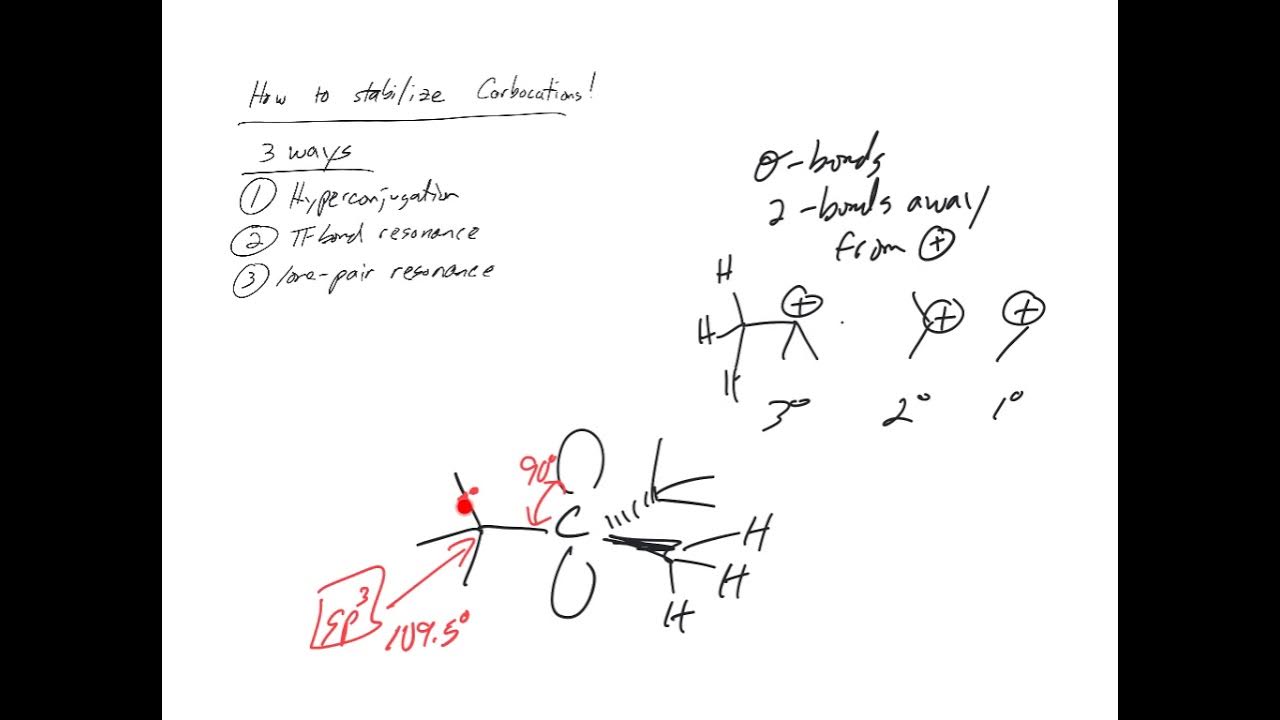 How to stabilize Carbocations!
3 ways
① Hyperconjugation
② π bond resonance
③ lone-pair resonance
σ-bonds
2-bonds away
from ⊕
H
H
H
⊕
⊕
⊕
3°
2°
1°
90°
C
H
H
H
sp³
109.5°